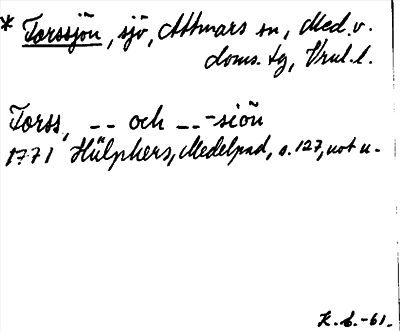 * Torssjön, sjö, Attmars sn, Med. v.
doms. tg, Vrnl. l.
Torss, -- och --siön
1771 Hülphers, Medelpad, s. 127, not u.
K. L. -61.